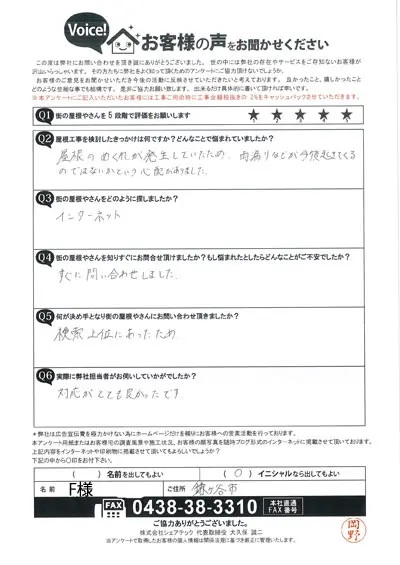 Voice!
お客様の声をお聞かせください
この度は弊社にお問い合わせを頂き誠にありがとうございました。世の中には弊社の存在やサービスをご存知ないお客様が
沢山いらっしゃいます。その方たちに弊社をよく知って頂くためのアンケートにご協力頂けないでしょうか。
お客様のご意見をお聞かせいただき今後の活動に反映させていただきたいと考えております。良かったこと、嬉しかったこと
どのような些細な事でも結構です。是非ご協力お願い致します。出来るだけ具体的に書いて頂ければ幸いです。
※本アンケートにご記入いただいたお客様には工事ご用命時に工事金額税抜きの2%をキャッシュバックさせていただきます。
Q1 街の屋根やさんを5段階で評価をお願いします
1 2 3 4 5
Q2 屋根工事を検討したきっかけは何ですか?どんなことで悩まれていましたか?
屋根のめくれが発生していたため、雨漏りなどが今後起きてくる
のではないかという心配がありました。
Q3 街の屋根やさんをどのように探しましたか?
インターネット
Q4 街の屋根やさんを知りすぐにお問合せ頂けましたか?もし悩まれたとしたらどんなことがご不安でしたか?
すぐに問い合わせしました。
Q5 何が決め手となり街の屋根やさんにお問い合わせ頂きましたか?
検索上位にあったため
Q6 実際に弊社担当者がお伺いしていかがでしたか?
対応がとても良かったです
*弊社は広告宣伝費を極力かけない為にホームページだけを頼りにお客様への営業活動を行っております。
本アンケート用紙またはお客様宅の調査風景や施工状況、お客様の顔写真を随時ブログ形式のインターネットに掲載させて頂いております。
上記内容をインターネットや印刷物に掲載させて頂いてもよろしいでしょうか?
下記の中から○印をお付け下さい。
( )名前を出してもよい (○)イニシャルなら出してもよい
名前 F様 ご住所 鎌ケ谷市
FAX 0438-38-3310 本社直通 FAX番号
ご協力ありがとうございました。
株式会社シェアテック 代表取締役 大久保 誠二
※アンケートで取得したお客様の個人情報は関係法規に基づき厳正に管理いたします。
岡野